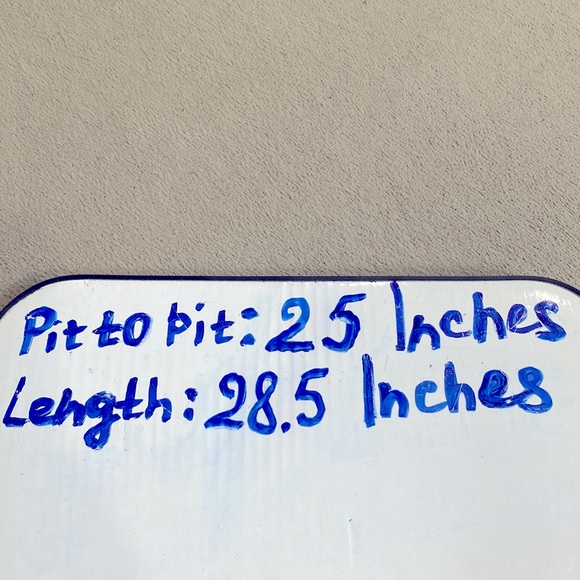 Pit to pit: 25 Inches
Length: 28.5 Inches